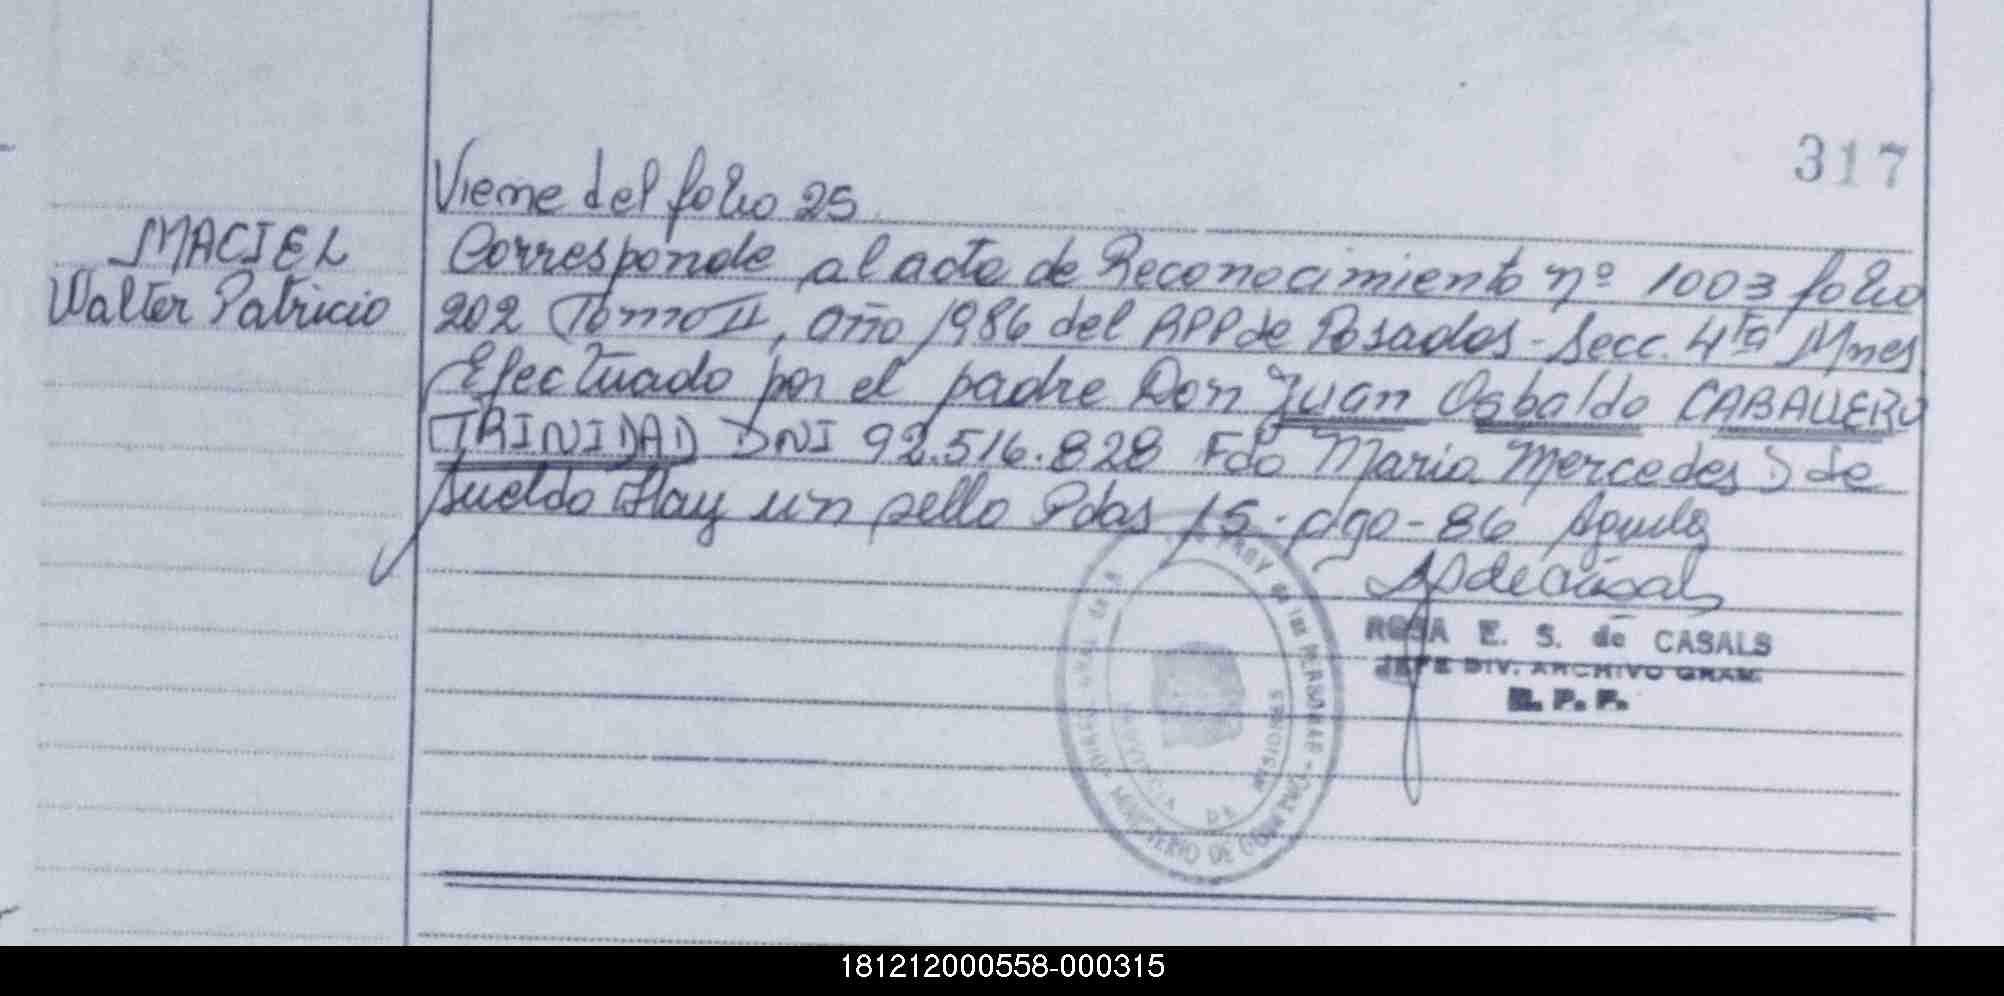 317
Viene del folio 25
MACIEL
Walter Patricio
Corresponde al acta de Reconocimiento nº 1003 folio
202 Tomo II, año 1986 del APP de Posadas - Secc. 4ta Mnes
Efectuado por el padre Don Juan Osbaldo CABALLERO
TRINIDAD DNI 92.516.828 Fdo Maria Mercedes S de
Sueldo Hay un sello Pdas 15-ago-86
ROSA E. S. de CASALS
JEFE DIV. ARCHIVO GRAM.
R. P. P.
de las PERSONAS - MINISTERIO DE GOBIERNO
MISIONES
181212000558-000315